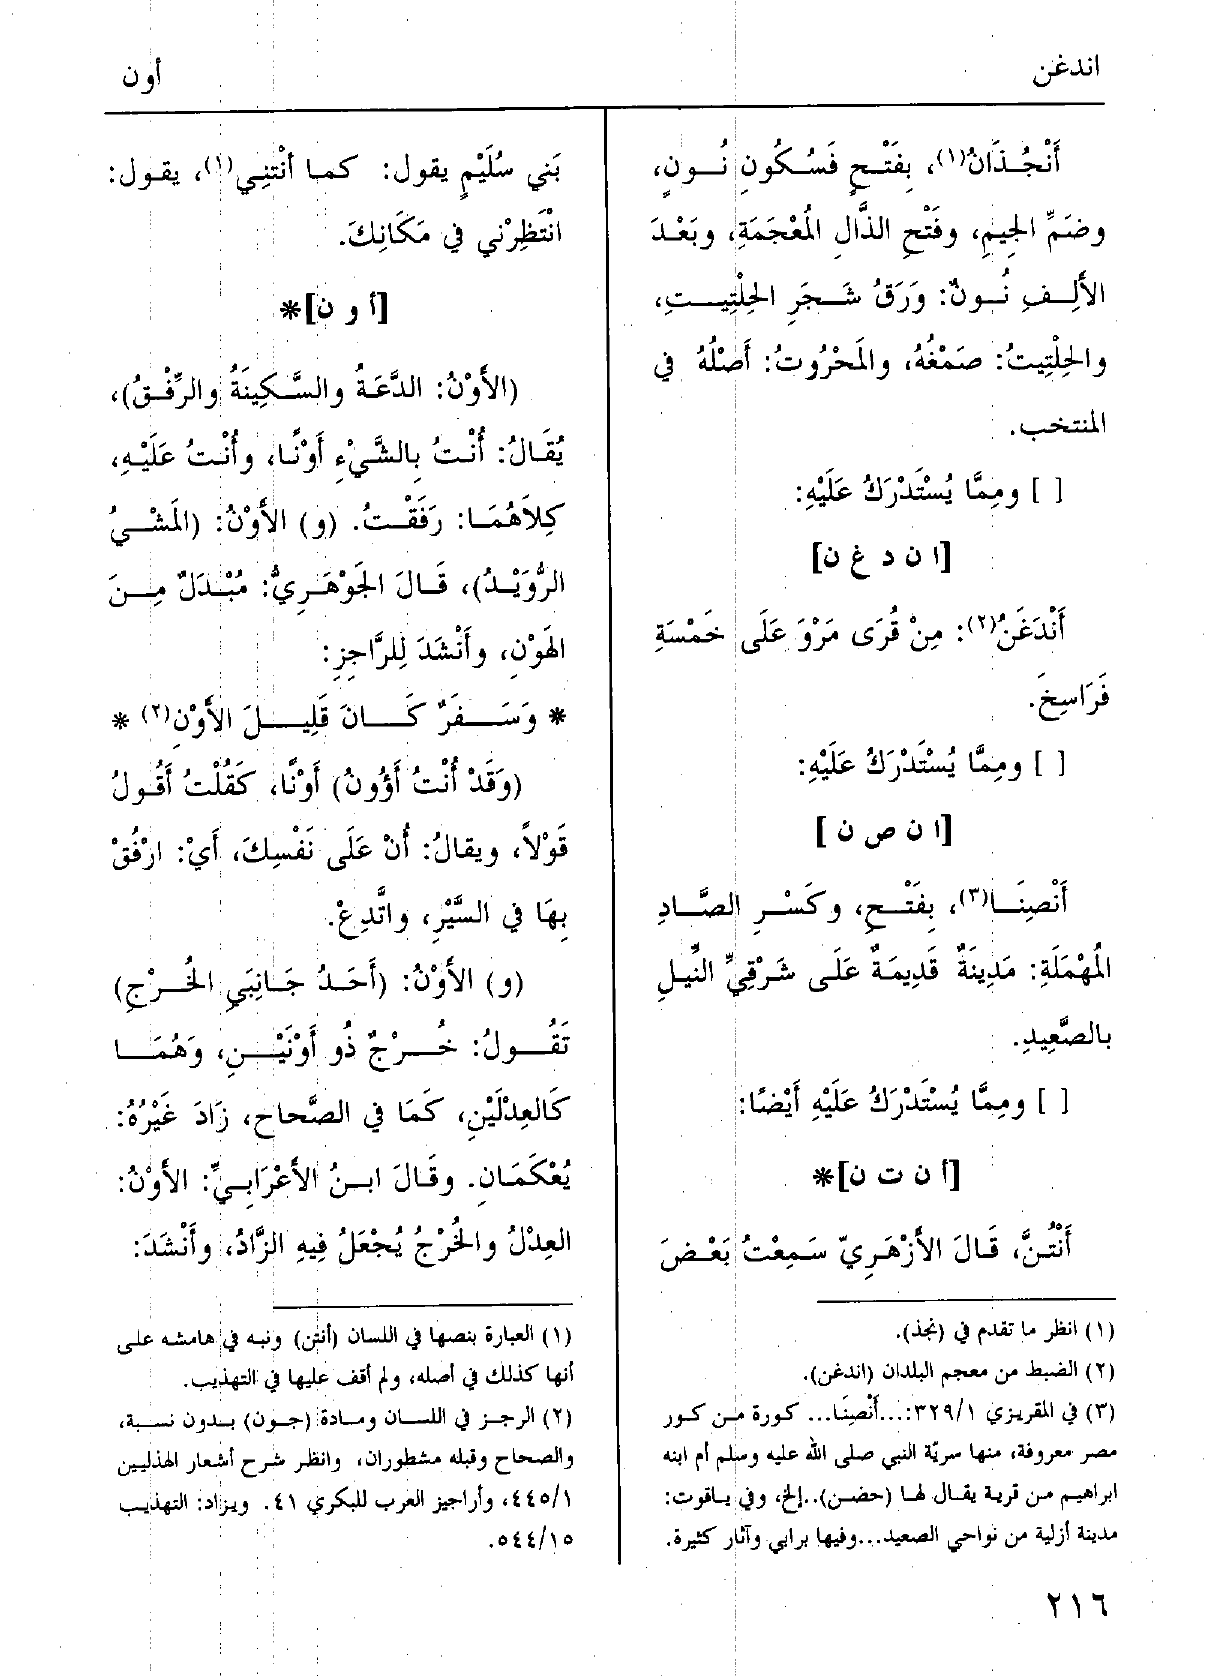 اندغن
أون
أَنْجُـذَانُ(١)، بِفَتْـحٍ فَسُـكُونِ نُـونٍ،
وضَمِّ الجِيمِ، وفَتْحِ الذَّالِ المُعْجَمَةِ، وبَعْـدَ
الأَلِـفِ نُـونٌ: وَرَقُ شَـجَرِ الحِلْتِيـتِ،
والحِلْتِيتُ: صَمْغُهُ، والمَحْرُوتُ: أَصْلُهُ في
المنتخب.
[ ] ومِمَّا يُسْتَدْرَكُ عَلَيْهِ:
[ا ن د غ ن]
أَنْدَغَنُ(٢): مِنْ قُرَى مَرْوَ عَلَى خَمْسَةِ
فَرَاسِخَ.
[ ] ومِمَّا يُسْتَدْرَكُ عَلَيْهِ:
[ا ن ص ن ]
أَنْصِنَـا(٣)، بِفَتْـحٍ، وكَسْـرِ الصَّـادِ
المُهْمَلَةِ: مَدِينَةٌ قَدِيمَةٌ عَلَـى شَرْقِيِّ النِّيلِ
بالصَّعِيدِ.
[ ] ومِمَّا يُسْتَدْرَكُ عَلَيْهِ أَيْضًا:
[أ ن ت ن]*
أَنْتُـنَّ، قَـالَ الأَزْهَرِيّ سَـمِعْتُ بَعْـضَ
(١) انظر ما تقدم في (نجذ).
(٢) الضبط من معجم البلدان (اندغن).
(٣) في المقريزي ٣٢٩/١:...أَنْصِنَا... كورة من كور
مصر معروفة، منها سريّة النبي صلى الله عليه وسلم أم ابنه
ابراهيم من قرية يقال لها (حضن)..إلخ، وفي ياقوت:
مدينة أزلية من نواحي الصعيد...وفيها برابي وآثار كثيرة.
بَنِي سُلَيْمٍ يقول: كما أنْتنِي(١)، يقول:
انْتَظِرْني في مَكَانِكَ.
[أ و ن]*
(الأَوْنُ: الدَّعَةُ والسَّـكِينَةُ والرِّفْـقُ)،
يُقَـالُ: أُنْـتُ بِالشَّـيْءِ أَوْنًـا، وأُنْـتُ عَلَيْـهِ،
كِلاَهُمَـا: رَفَقْـتُ. (و) الأَوْنُ: (المَشْـيُ
الرُّوَيْـدُ)، قَـالَ الجَوْهَـرِيُّ: مُبْـدَلٌ مِـنَ
الهَوْنِ، وأَنْشَدَ لِلرَّاجِزِ:
* وَسَـفَرٌ كَـانَ قَلِيـلَ الأَوْنِ(٢) *
(وَقَدْ أُنْتُ أَؤُونُ) أَوْنًا، كَقُلْتُ أَقُولُ
قَوْلاً، ويقالُ: أُنْ عَلَى نَفْسِكَ، أَيْ: ارْفُقْ
بِهَا في السَّيْرِ، واتَّدِعْ.
(و) الأَوْنُ: (أَحَـدُ جَـانِبَيِ الخُـرْجِ)
تَقُـولُ: خُـرْجٌ ذُو أَوْنَيْـنِ، وَهُمَـا
كَالعِدْلَيْنِ، كَمَا في الصِّحاحِ، زَادَ غَيْرُهُ:
يُعْكَمَـانِ. وقَـالَ ابـنُ الأَعْرَابـيِّ: الأَوْنُ:
العِدْلُ والخُرْجُ يُجْعَلُ فِيهِ الزَّادُ، وأَنْشَدَ:
(١) العبارة بنصها في اللسان (أنتن) ونبه في هامشه على
أنها كذلك في أصله، ولم أقف عليها في التهذيب.
(٢) الرجز في اللسان ومادة (جون) بـدون نسبة،
والصحاح وقبله مشطوران، وانظر شرح أشعار الهذليين
٤٤٥/١، وأراجيز العرب للبكري ٤١. ويزاد: التهذيب
٥٤٤/١٥.
٢١٦